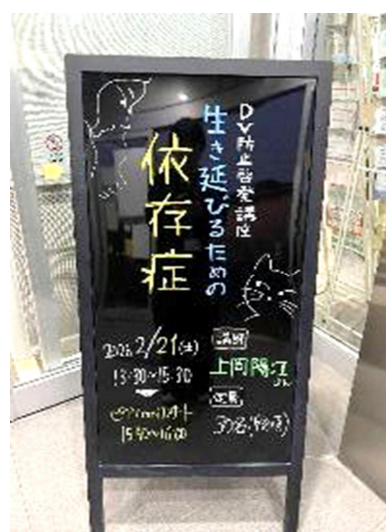 DV防止啓発講座
生き延びるための
依存症
2026 2/21(土)
13:30~15:30
15:40~16:00
講師
上岡陽江
さん
定員
30名